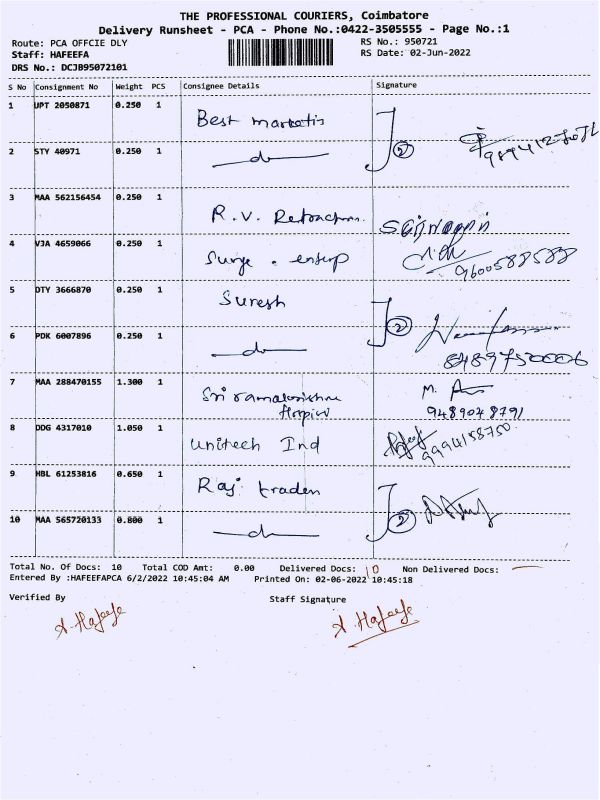 THE PROFESSIONAL COURIERS, Coimbatore
Delivery Runsheet - PCA - Phone No.:0422-3505555 - Page No.:1
Route: PCA OFFCIE DLY RS No.: 950721
Staff: HAFEEFA RS Date: 02-Jun-2022
DRS No.: DCJB95072101
S No Consignment No Weight PCS Consignee Details Signature
1 UPT 2050871 0.250 1 Best
2 STY 40971 0.250 1 2
3 MAA 562156454 0.250 1 R.V.
4 VJA 4659066 0.250 1
9600588588
5 DTY 3666870 0.250 1 Suresh
6 PDK 6007896 0.250 1 2
8489750006
7 MAA 288470155 1.300 1 Sri M.
9489048791
8 DDG 4317010 1.050 1 Unitech Ind 9994158750
9 HBL 61253816 0.650 1 Raj
10 MAA 565720133 0.800 1 2
Total No. Of Docs: 10 Total COD Amt: 0.00 Delivered Docs: 10 Non Delivered Docs: —
Entered By :HAFEEFAPCA 6/2/2022 10:45:04 AM Printed On: 02-06-2022 10:45:18
Verified By Staff Signature
A. Hafeefe A. Hafeefe